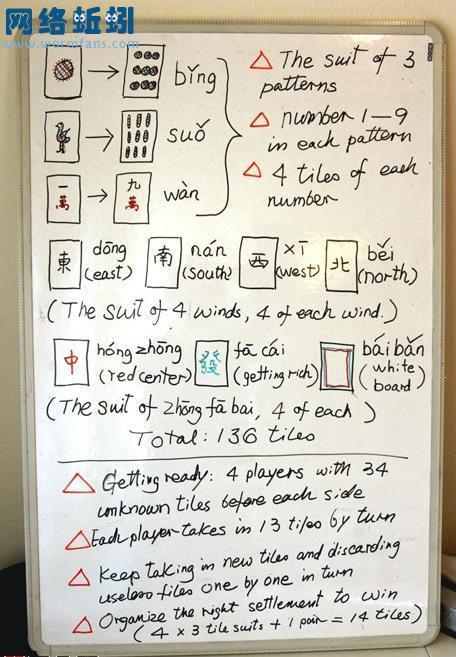 网络蚯蚓
www.wormfans.com
bǐng
suǒ
一萬 九萬 wàn
The suit of 3
patterns
number 1—9
in each pattern
4 tiles of each
number
東 dōng (east) 南 nán (south) 西 xī (west) 北 běi (north)
(The suit of 4 winds, 4 of each wind.)
中 hóng zhōng (red center) 發 fā cái (getting rich) bái bǎn (white board)
(The suit of zhōng fā bai, 4 of each)
Total: 136 tiles
Getting ready: 4 players with 34
unknown tiles before each side
Each player takes in 13 tiles by turn
Keep taking in new tiles and discarding
useless tiles one by one in turn
Organize the right settlement to win
(4 x 3 tile suits + 1 pair = 14 tiles)